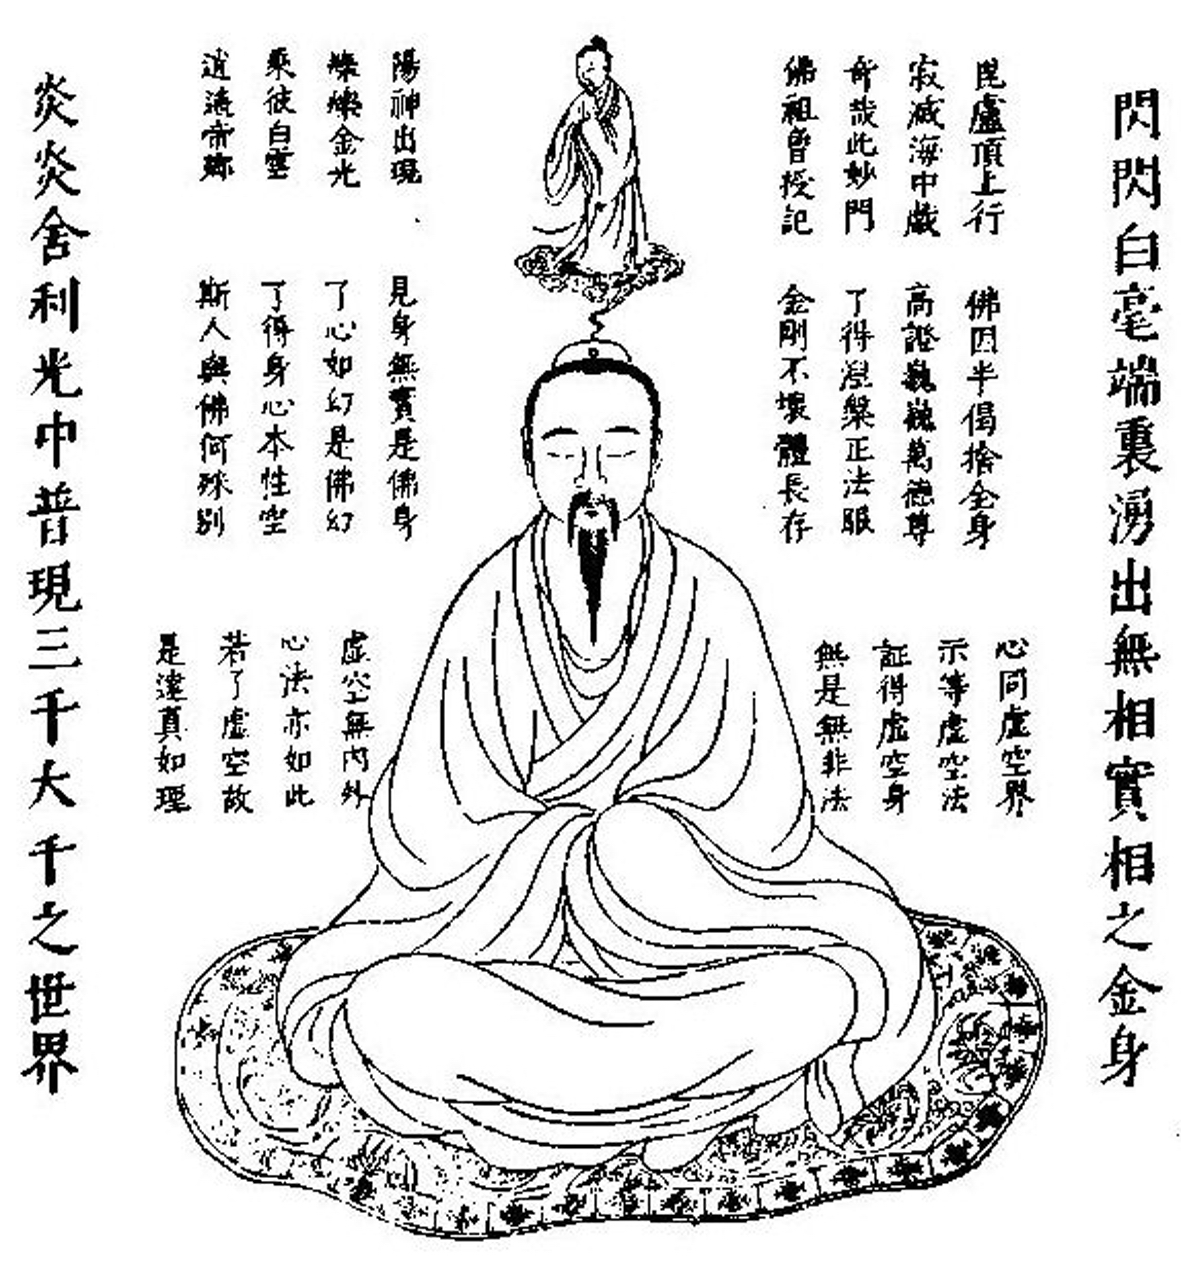 閃閃白毫端裏湧出無相實相之金身
毘盧頂上行
寂滅海中戲
奇哉此妙門
佛祖曾授記
佛因半偈捨全身
高證巍巍萬德尊
了得涅槃正法眼
金剛不壞體長存
心同虛空界
示等虛空法
証得虛空身
無是無非法
陽神出現
爍爍金光
乘彼白雲
逍遙帝鄉
見身無實是佛身
了心如幻是佛幻
了得身心本性空
斯人與佛何殊別
虛空無內外
心法亦如此
若了虛空故
是達真如理
炎炎舍利光中普現三千大千之世界